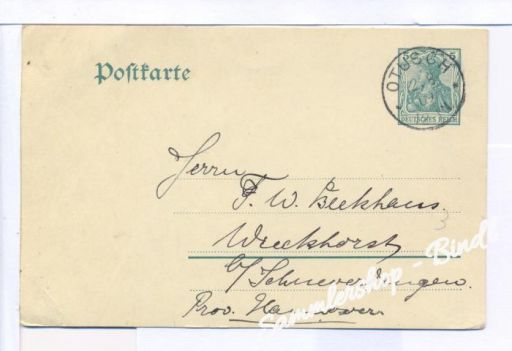 Postkarte
OTUSCH
DEUTSCHES REICH
Herrn
F. W. Beekhaus
b/Schneverdingen.
Prov. Hannover.
Sammlershop - Bindl